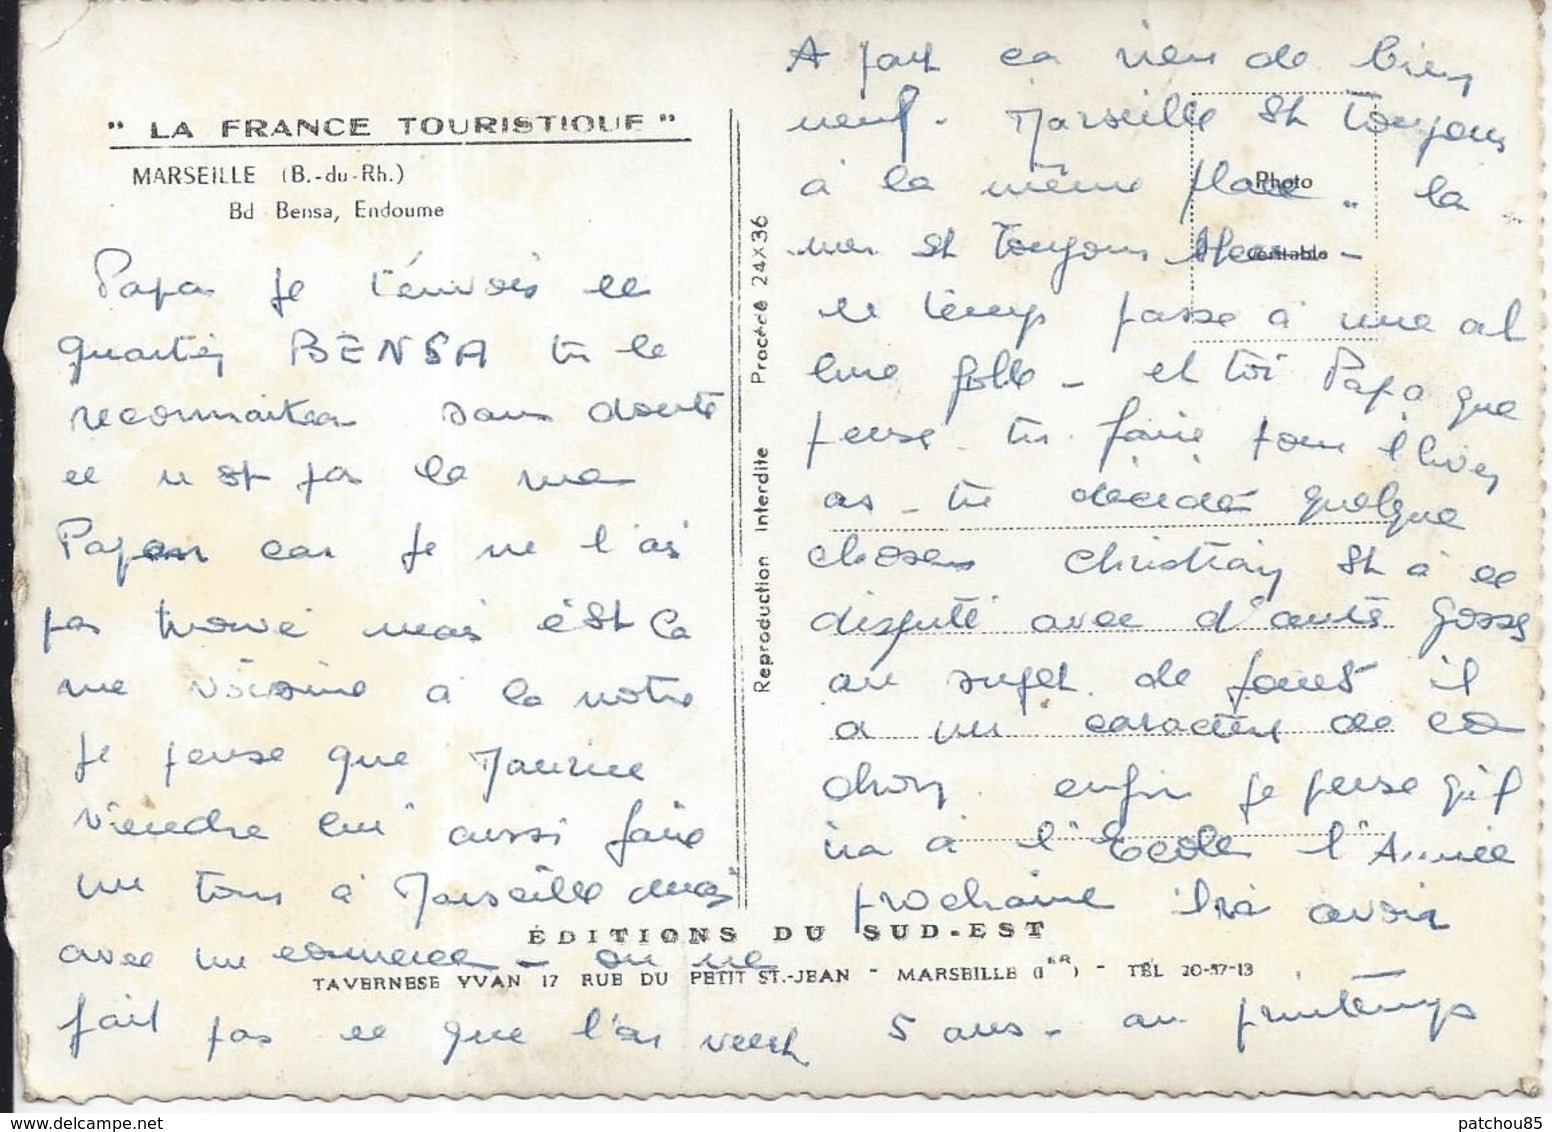 " LA FRANCE TOURISTIQUE "
MARSEILLE (B.-du-Rh.)
Bd Bensa, Endoume
Papa je t'envois ce
quartier BENSA tu le
reconnaitra sans doute
ce n'est pas la rue
Papa car je ne l'ai
pas trouvé mais c'est ça
rue voisine à la notre
je pense que Maurice
viendra lui aussi faire
un tour à Marseille mais
avec un commerce - on ne
fait pas ce que l'on veut
Reproduction Interdite Procédé 24X36
A part ca rien de bien
neuf. Marseille est toujours
à la même place .. la
mer est toujours bleue -
le temps passe à une al
lure folle - et toi Papa que
pense-tu faire pour l'hiver
as-tu décidé quelque
choses Christian est à se
disputé avec d'autre gosses
au sujet de jouet il
a un caractère de co
chon. enfin je pense qu'il
ira à l'Ecole l'Année
prochaine il va avoir
5 ans - au printemps
Photo
Véritable
ÉDITIONS DU SUD-EST
TAVERNESE YVAN 17 RUE DU PETIT ST.-JEAN - MARSEILLE (1ER) - TÉL 20-37-13
patchou85